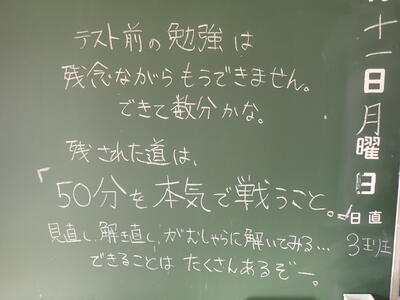 テスト前の勉強は
残念ながらもうできません。
できて数分かな。
残された道は、
「50分を本気で戦うこと。」
見直し、解き直し、がむしゃらに解いてみる…
できることはたくさんあるぞー。
十一日月曜日
日直
3班